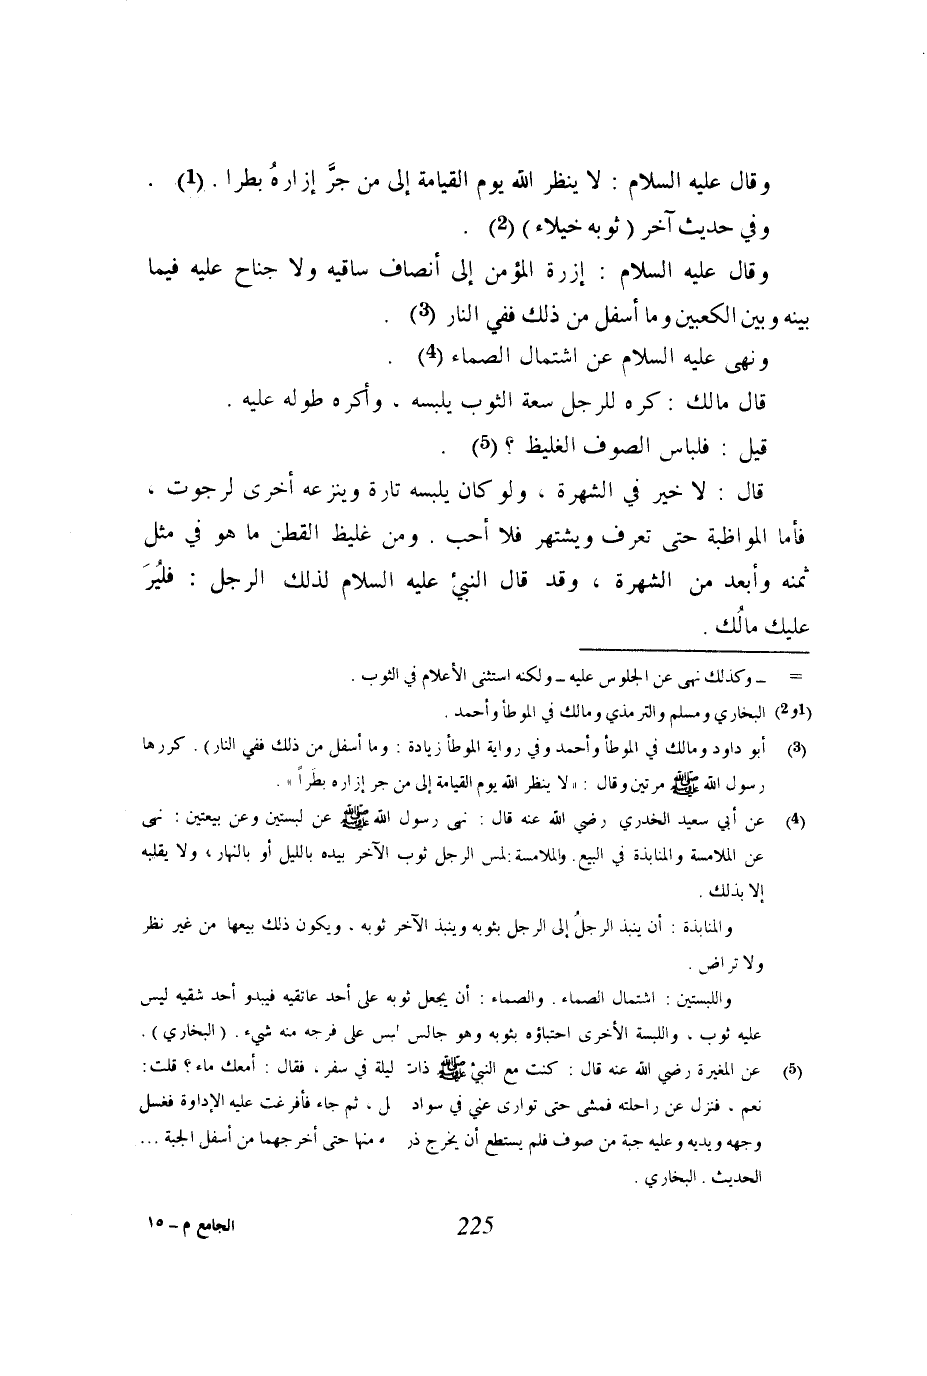 وقال عليه السلام : لا ينظر الله يوم القيامة إلى من جرَّ إزارهُ بطرا . (1) .
وفي حديث آخر ( ثوبه خيلاء ) (2) .
وقال عليه السلام : إزرة المؤمن إلى أنصاف ساقيه ولا جناح عليه فيما
بينه وبين الكعبين وما أسفل من ذلك ففي النار (3) .
ونهى عليه السلام عن اشتمال الصماء (4) .
قال مالك : كره للرجل سعة الثوب يلبسه ، وأكره طوله عليه .
قيل : فلباس الصوف الغليظ ؟ (5) .
قال : لا خير في الشهرة ، ولو كان يلبسه تارة وينزعه أخرى لرجوت ،
فأما المواظبة حتى تعرف ويشتهر فلا أحب . ومن غليظ القطن ما هو في مثل
ثمنه وأبعد من الشهرة ، وقد قال النبئ عليه السلام لذلك الرجل : فليُرَ
عليك مالُك .
= ــ وكذلك نهى عن الجلوس عليه ــ ولكنه استثنى الأعلام في الثوب .
(1و2) البخاري ومسلم والترمذي ومالك في الموطأ وأحمد .
(3) أبو داود ومالك في الموطأ وأحمد وفي رواية الموطأ زيادة : وما أسفل من ذلك ففي النار) . كررها
رسول الله ﷺ مرتين وقال : «لا ينظر الله يوم القيامة إلى من جر إزاره بطَراً» .
(4) عن أبي سعيد الخدري رضي الله عنه قال : نهى رسول الله ﷺ عن لبستين وعن بيعتين : نهى
عن الملامسة والمنابذة في البيع. والملامسة : لمس الرجل ثوب الآخر بيده بالليل أو بالنهار، ولا يقلبه
إلا بذلك .
والمنابذة : أن ينبذ الرجلُ إلى الرجل بثوبه وينبذ الآخر ثوبه ، ويكون ذلك بيعها من غير نظر
ولا تراض .
واللبستين : اشتمال الصماء . والصماء : أن يجعل ثوبه على أحد عاتقيه فيبدو أحد شقيه ليس
عليه ثوب ، واللبسة الأخرى احتباؤه بثوبه وهو جالس ليس على فرجه منه شيء . (البخاري) .
(5) عن المغيرة رضي الله عنه قال : كنت مع النبئ ﷺ ذات ليلة في سفر ، فقال : أمعك ماء ؟ قلت :
نعم ، فنزل عن راحلته فمشى حتى توارى عني في سواد ل ، ثم جاء فأفرغت عليه الإداوة فغسل
وجهه ويديه وعليه جبة من صوف فلم يستطع أن يخرج ذر ه منها حتى أخرجهما من أسفل الجبة ...
الحديث . البخاري .
225
الجامع م - ١٥